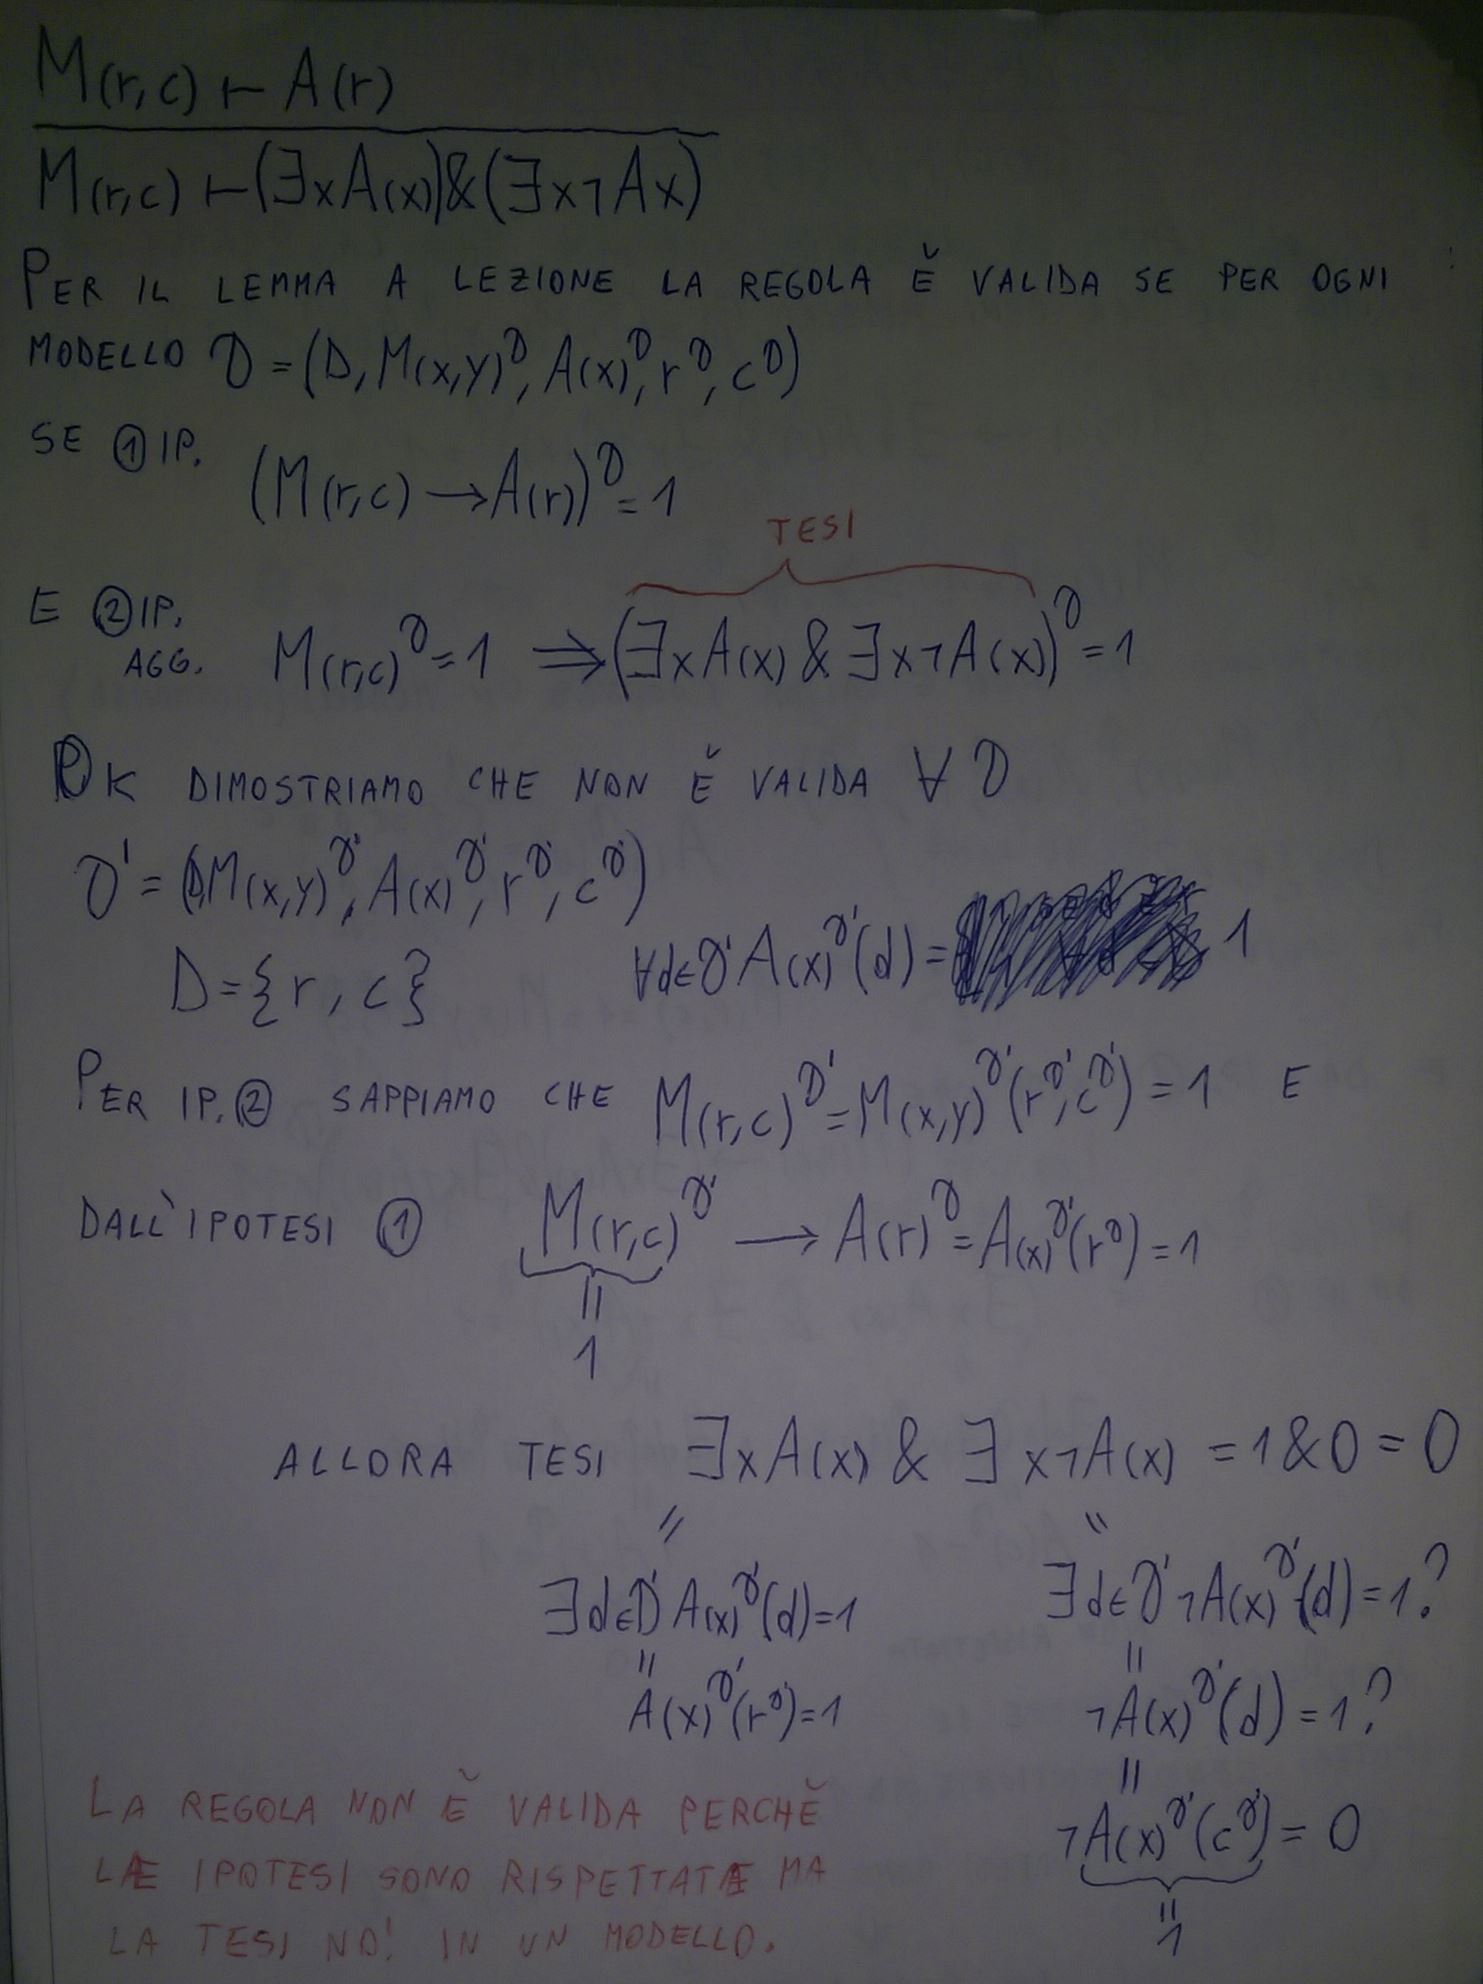 M(r,c) ⊢ A(r)
M(r,c) ⊢ (∃xA(x))&(∃x¬Ax)
PER IL LEMMA A LEZIONE LA REGOLA È VALIDA SE PER OGNI
MODELLO D = (D, M(x,y)^D, A(x)^D, r^D, c^D)
SE ① IP. (M(r,c) → A(r))^D = 1
TESI
E ② IP. AGG. M(r,c)^D = 1 ⇒ (∃xA(x) & ∃x¬A(x))^D = 1
OK DIMOSTRIAMO CHE NON È VALIDA ∀ D
D' = (D, M(x,y)^D', A(x)^D', r^D', c^D')
D = {r, c} ∀d∈D' A(x)^D'(d) = 1
PER IP. ② SAPPIAMO CHE M(r,c)^D' = M(x,y)^D'(r^D', c^D') = 1 E
DALL'IPOTESI ① M(r,c)^D' → A(r)^D = A(x)^D'(r^D) = 1
=
1
ALLORA TESI ∃xA(x) & ∃x¬A(x) = 1&0 = 0
= =
∃d∈D' A(x)^D'(d)=1 ∃d∈D' ¬A(x)^D'(d)=1?
= =
A(x)^D'(r^D)=1 ¬A(x)^D'(d) = 1?
=
¬A(x)^D'(c^D') = 0
=
1
LA REGOLA NON È VALIDA PERCHÈ
LE IPOTESI SONO RISPETTATE MA
LA TESI NO! IN UN MODELLO.